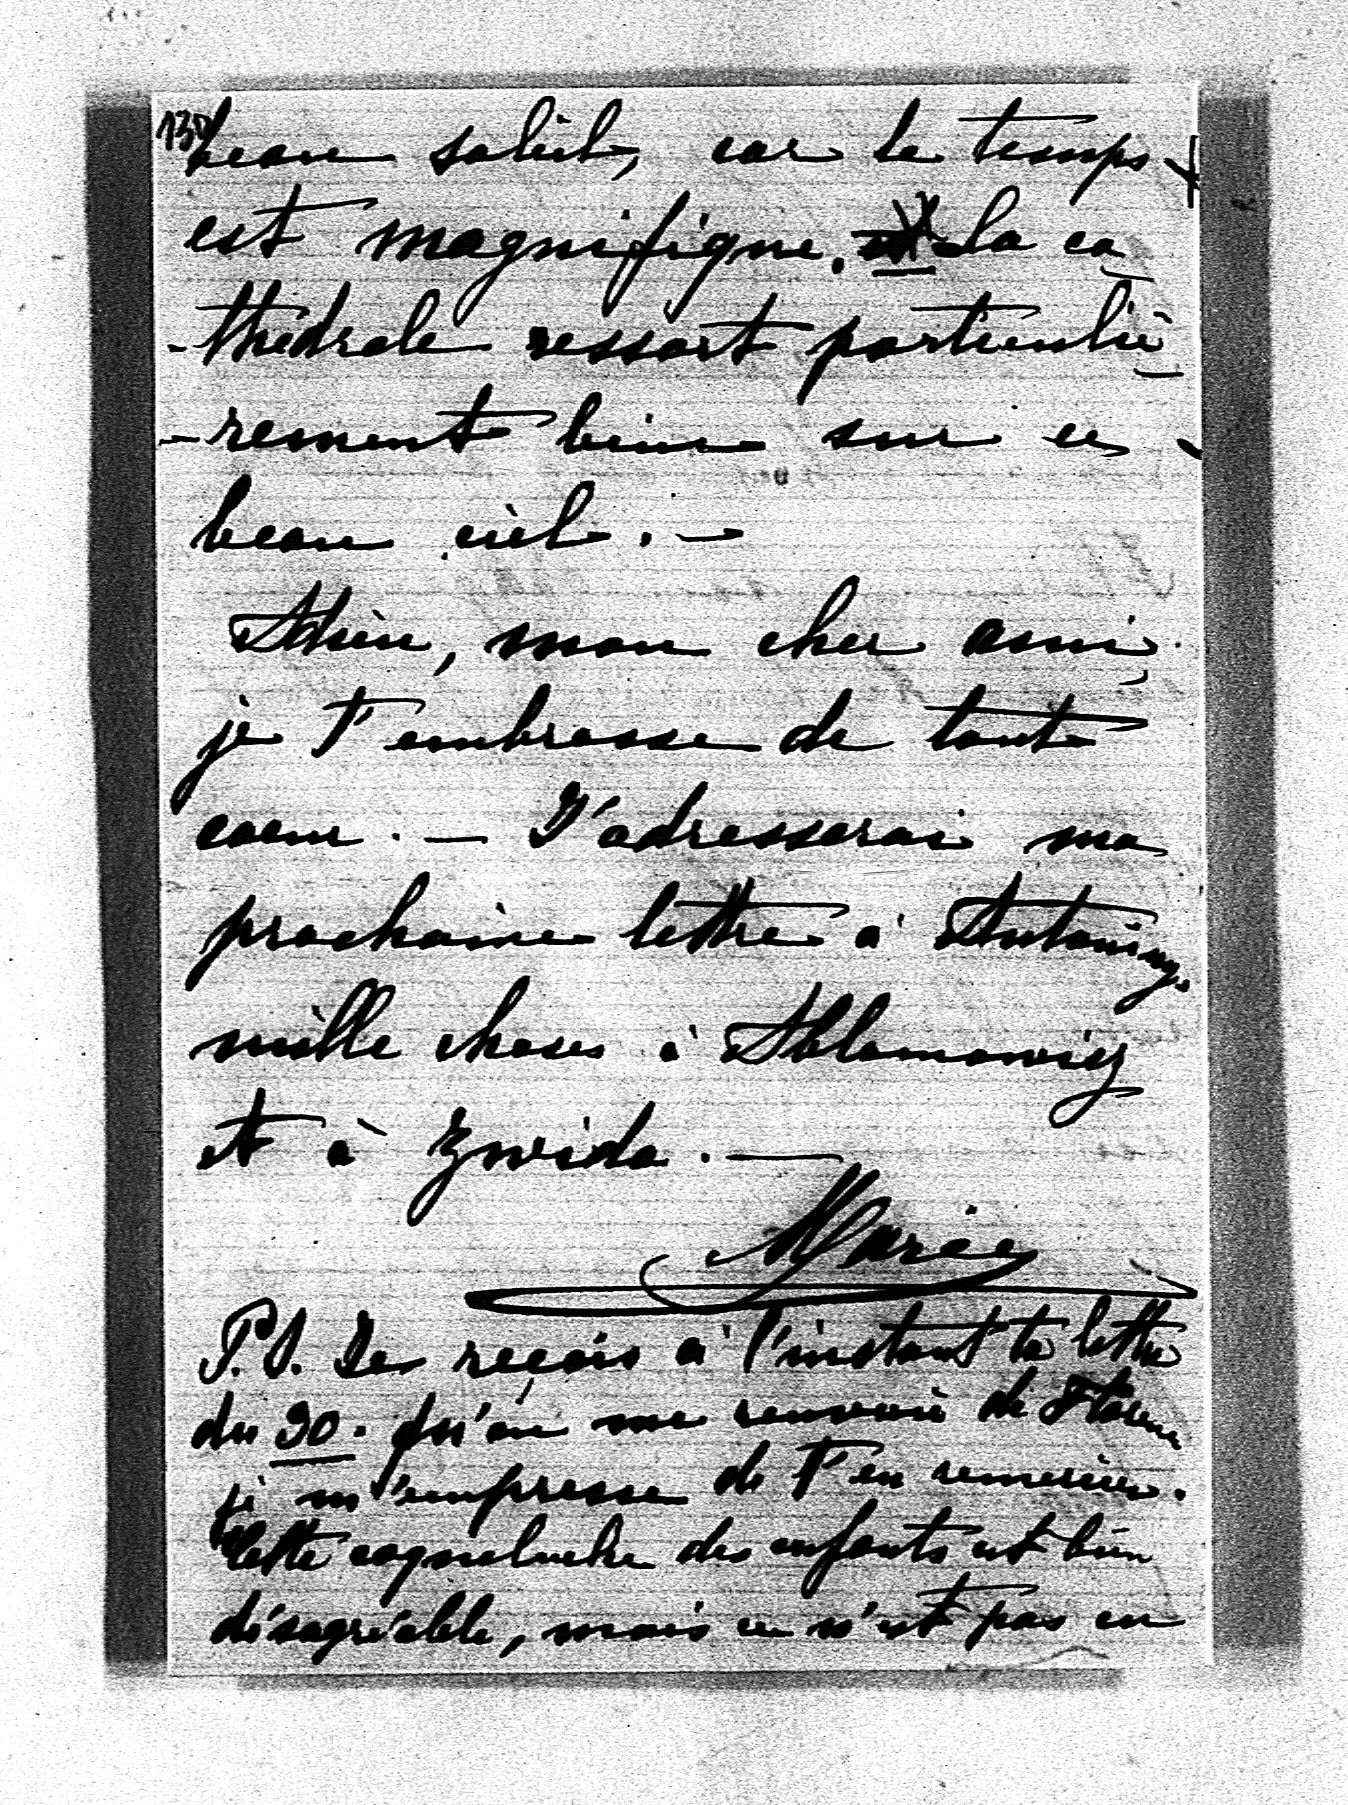 130
beau soleil, car le temps
est magnifique. La ca
-thédrale ressort particuliè
-rement bien sur ce
beau ciel. —
Adieu, mon cher ami
je t'embrasse de tout
coeur. — J'adresserai ma
prochaine lettre à Antoniny.
mille choses à Ablamowicz
et à Zwida. —
Marie
P.S. Je reçois à l'instant ta lettre
du 30. qu'on me renvoie de Floren
je m'empresse de t'en remercier.
Cette coqueluche des enfants est bien
désagréable, mais ce n'est pas un